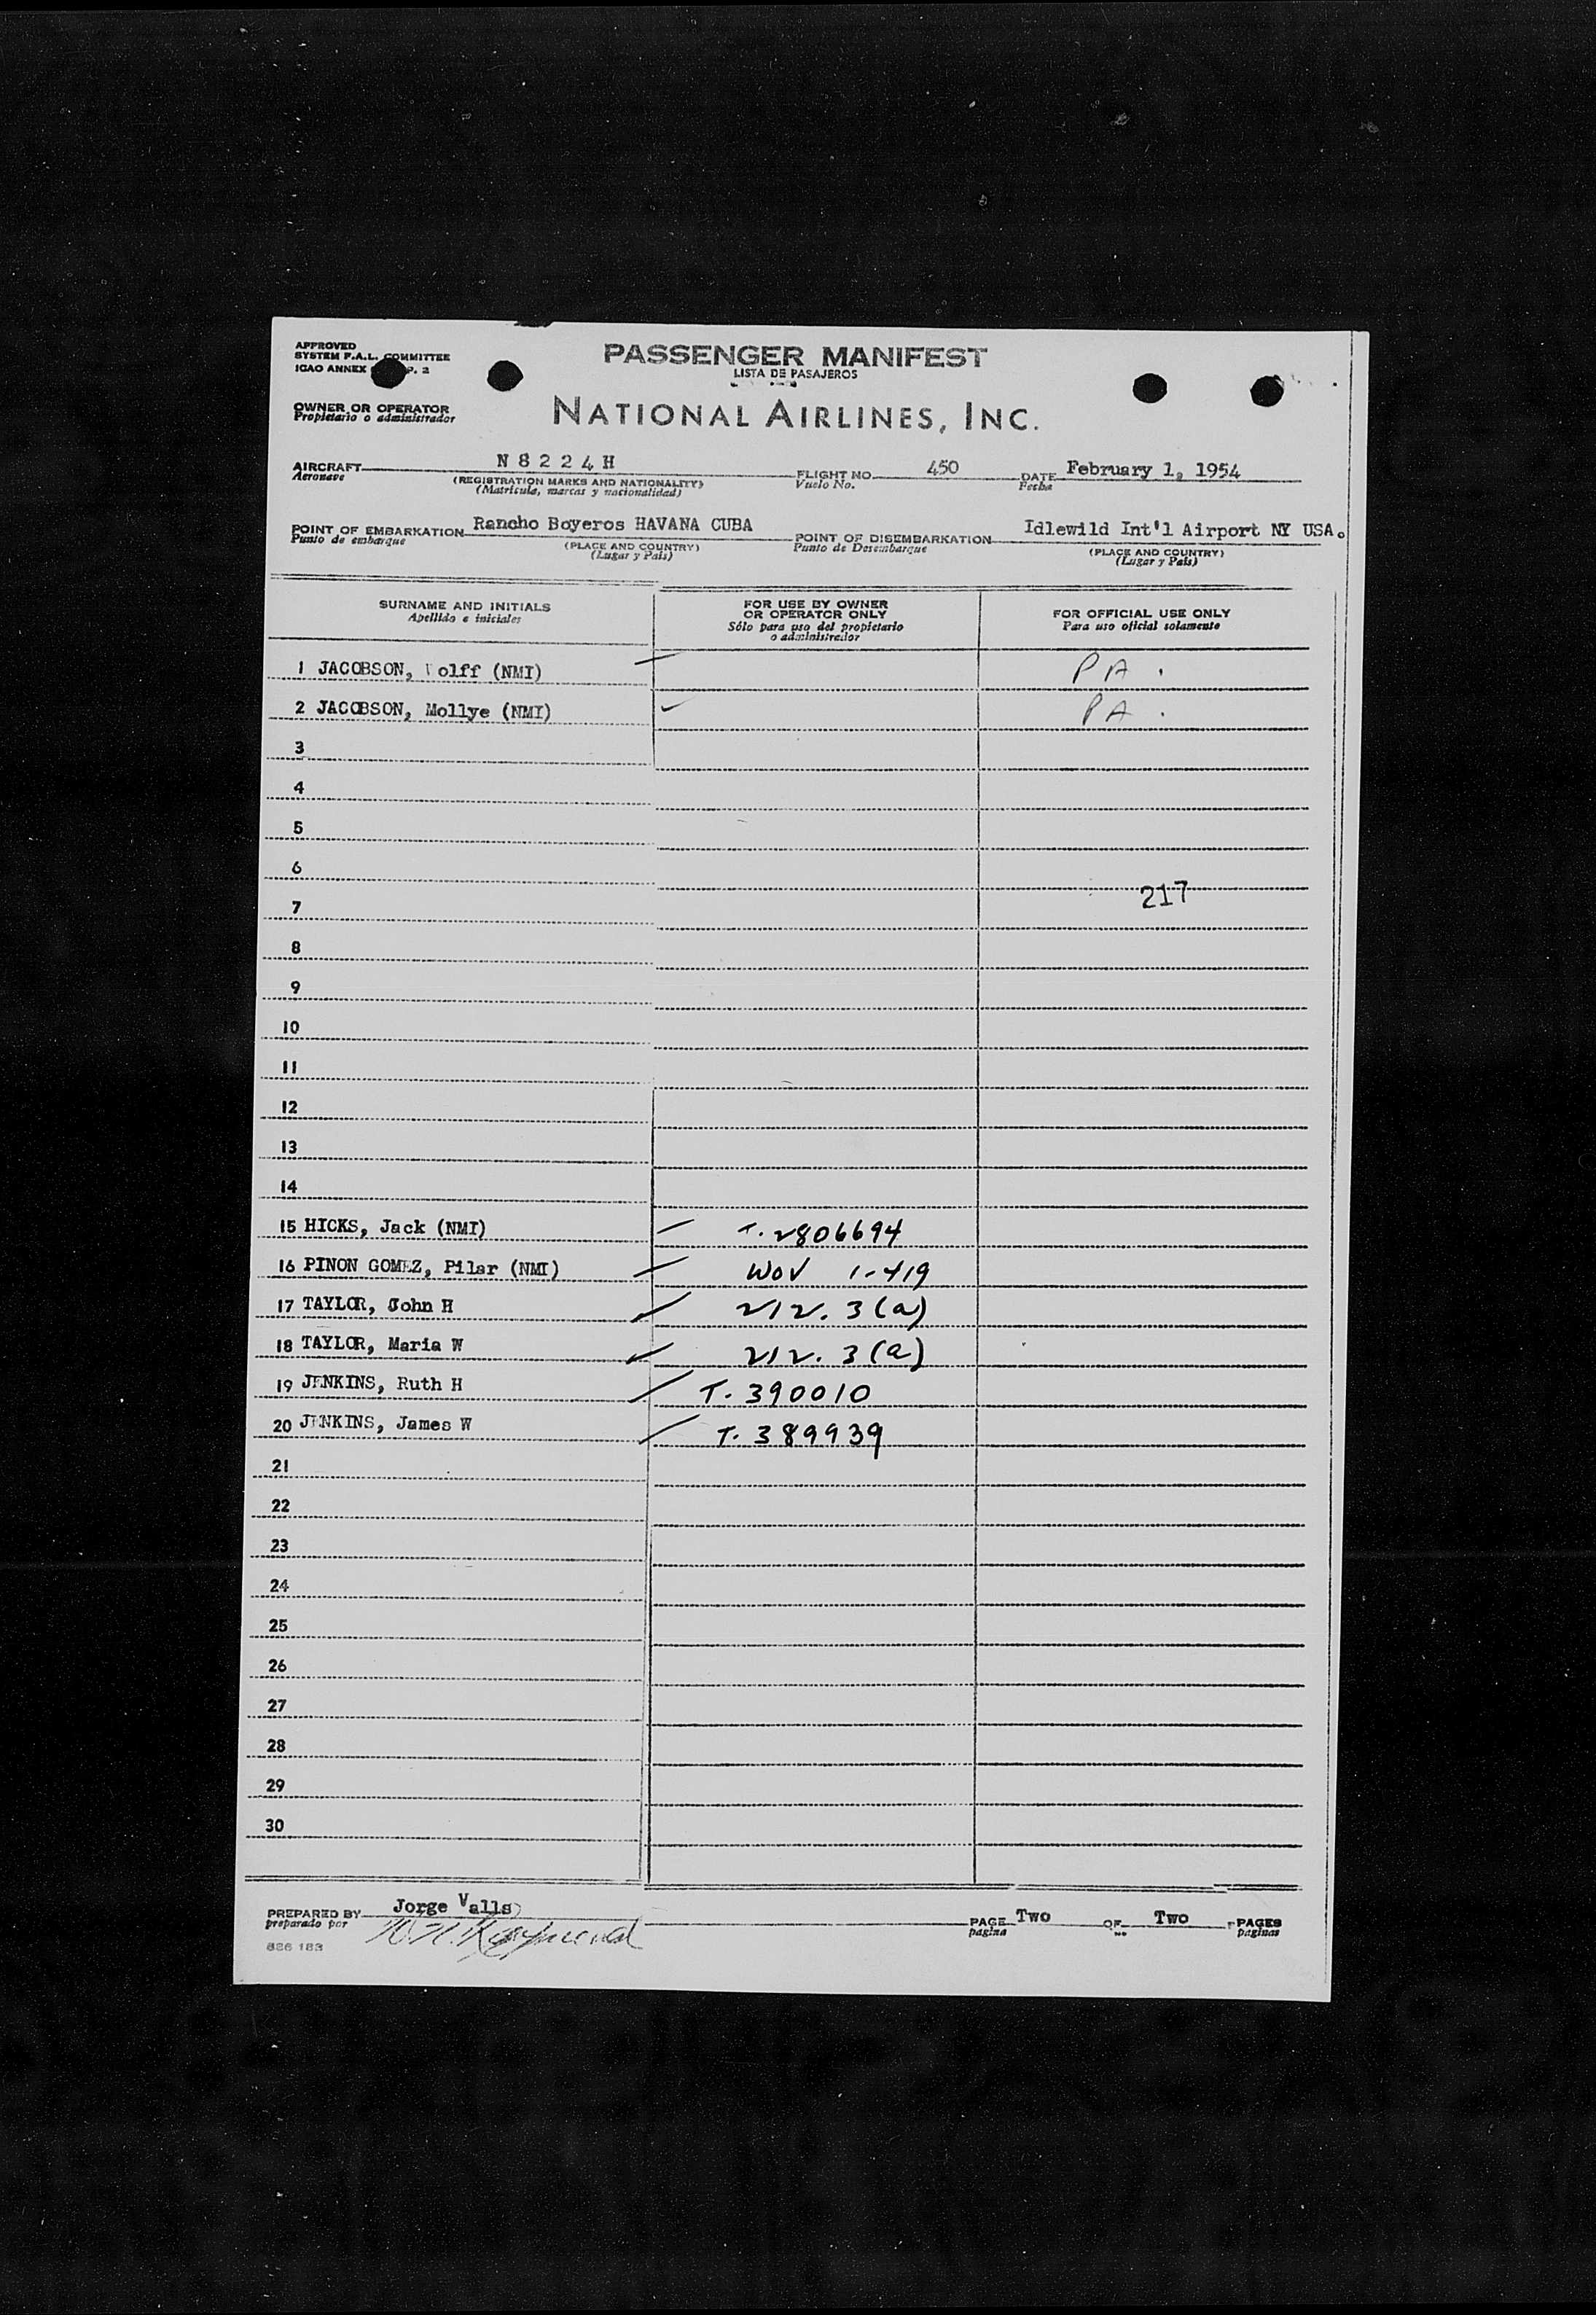 APPROVED
SYSTEM F.A.L. COMMITTEE
ICAO ANNEX P. 2
PASSENGER MANIFEST
LISTA DE PASAJEROS
OWNER OR OPERATOR
Propietario o administrador
NATIONAL AIRLINES, INC.
AIRCRAFT N 8 2 2 4 H FLIGHT NO. 450 DATE February 1, 1954
Aeronave (REGISTRATION MARKS AND NATIONALITY) Vuelo No. Fecha
(Matricula, marcas y nacionalidad)
POINT OF EMBARKATION Rancho Boyeros HAVANA CUBA POINT OF DISEMBARKATION Idlewild Int'l Airport NY USA.
Punto de embarque (PLACE AND COUNTRY) Punto de Desembarque (PLACE AND COUNTRY)
(Lugar y Pais) (Lugar y Pais)
SURNAME AND INITIALS
Apellido e iniciales
FOR USE BY OWNER
OR OPERATOR ONLY
Sólo para uso del propietario
o administrador
FOR OFFICIAL USE ONLY
Para uso oficial solamente
1 JACOBSON, olff (NMI) PA.
2 JACOBSON, Mollye (NMI) PA.
3
4
5
6
217
7
8
9
10
11
12
13
14
15 HICKS, Jack (NMI) T. 2806694
16 PINON GOMEZ, Pilar (NMI) WOV 1-419
17 TAYLOR, John H 212. 3(a)
18 TAYLOR, Maria W 212. 3(a)
19 JENKINS, Ruth H T. 390010
20 JENKINS, James W T. 389939
21
22
23
24
25
26
27
28
29
30
PREPARED BY Jorge Valls PAGE Two OF Two PAGES
preparado por pagina paginas